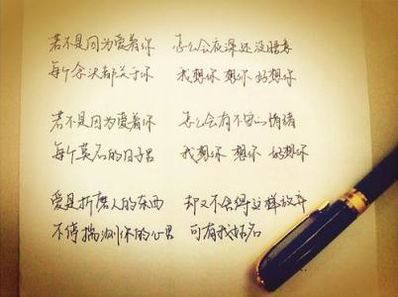 若不是因为爱着你 怎么会夜深还没睡意
每个念头都关于你 我想你 想你 好想你
若不是因为爱着你 怎么会有不安的情绪
每个莫名的日子里 我想你 想你 好想你
爱是折磨人的东西 却又不舍得这样放弃
不停揣测你的心里 可有我姓名